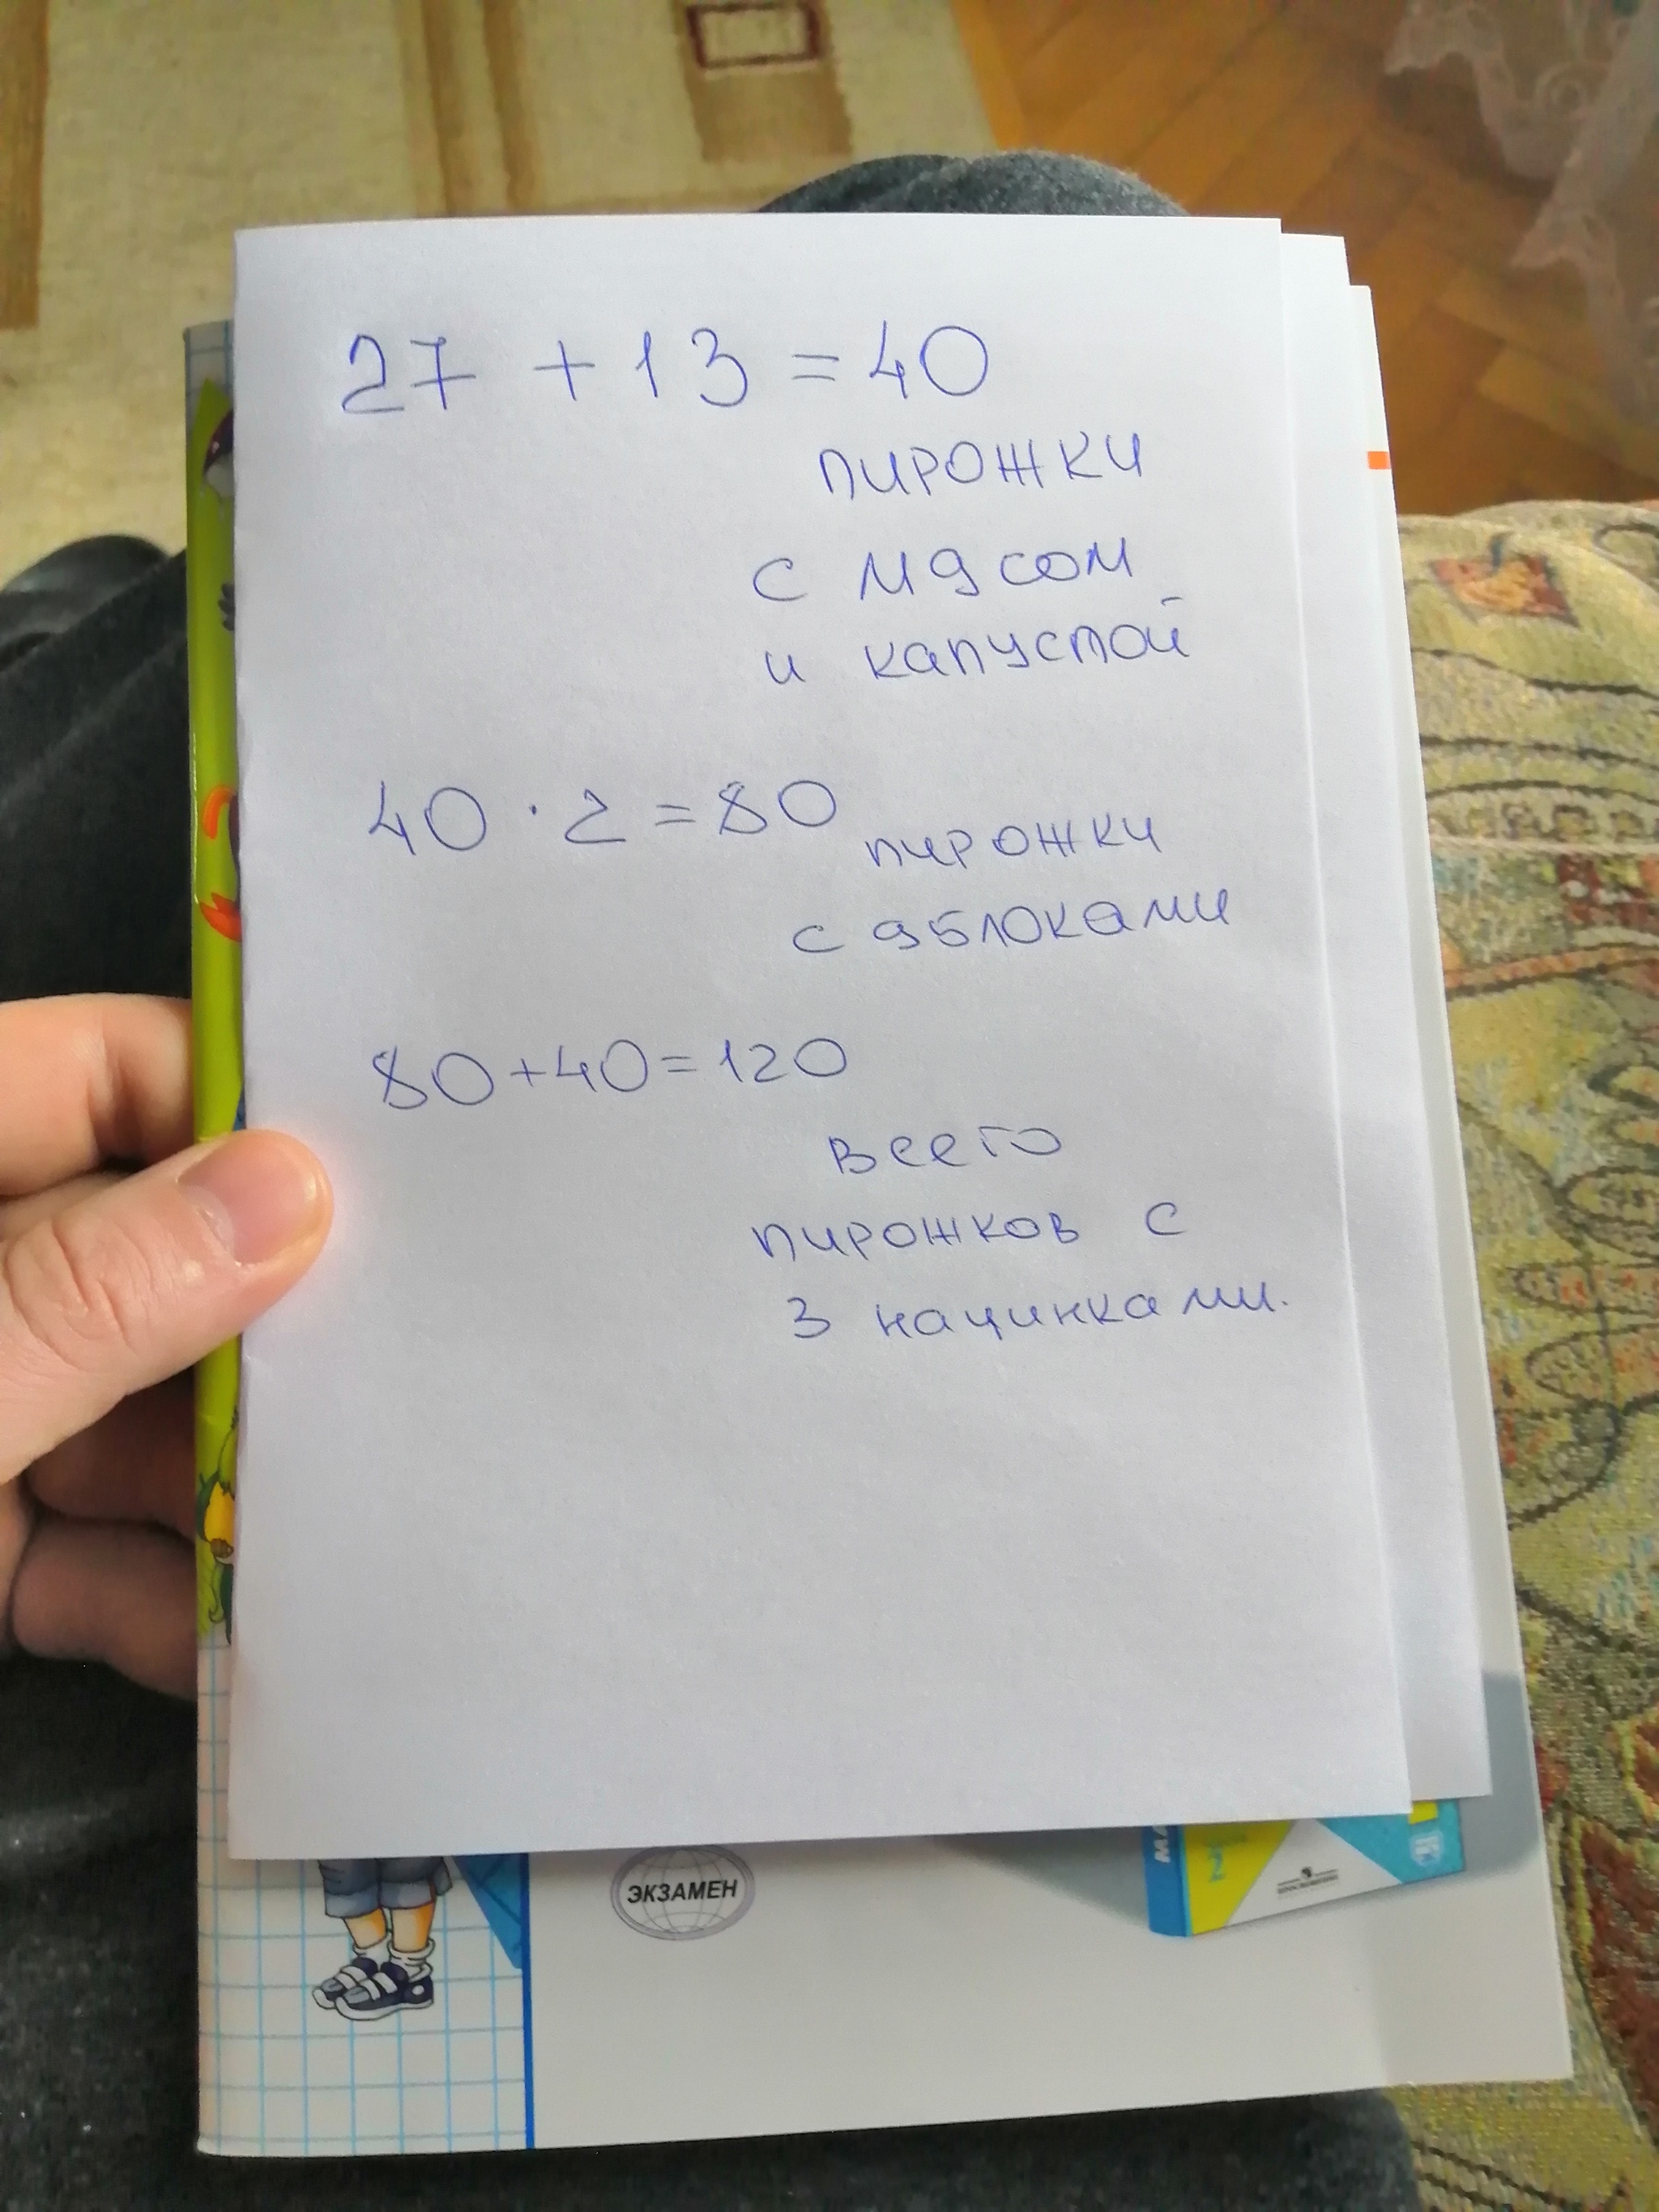 27 + 13 = 40
пирожки
с мясом
и капустой
40 · 2 = 80
пирожки
с яблоками
80 + 40 = 120
всего
пирожков с
3 начинками.
ЭКЗАМЕН